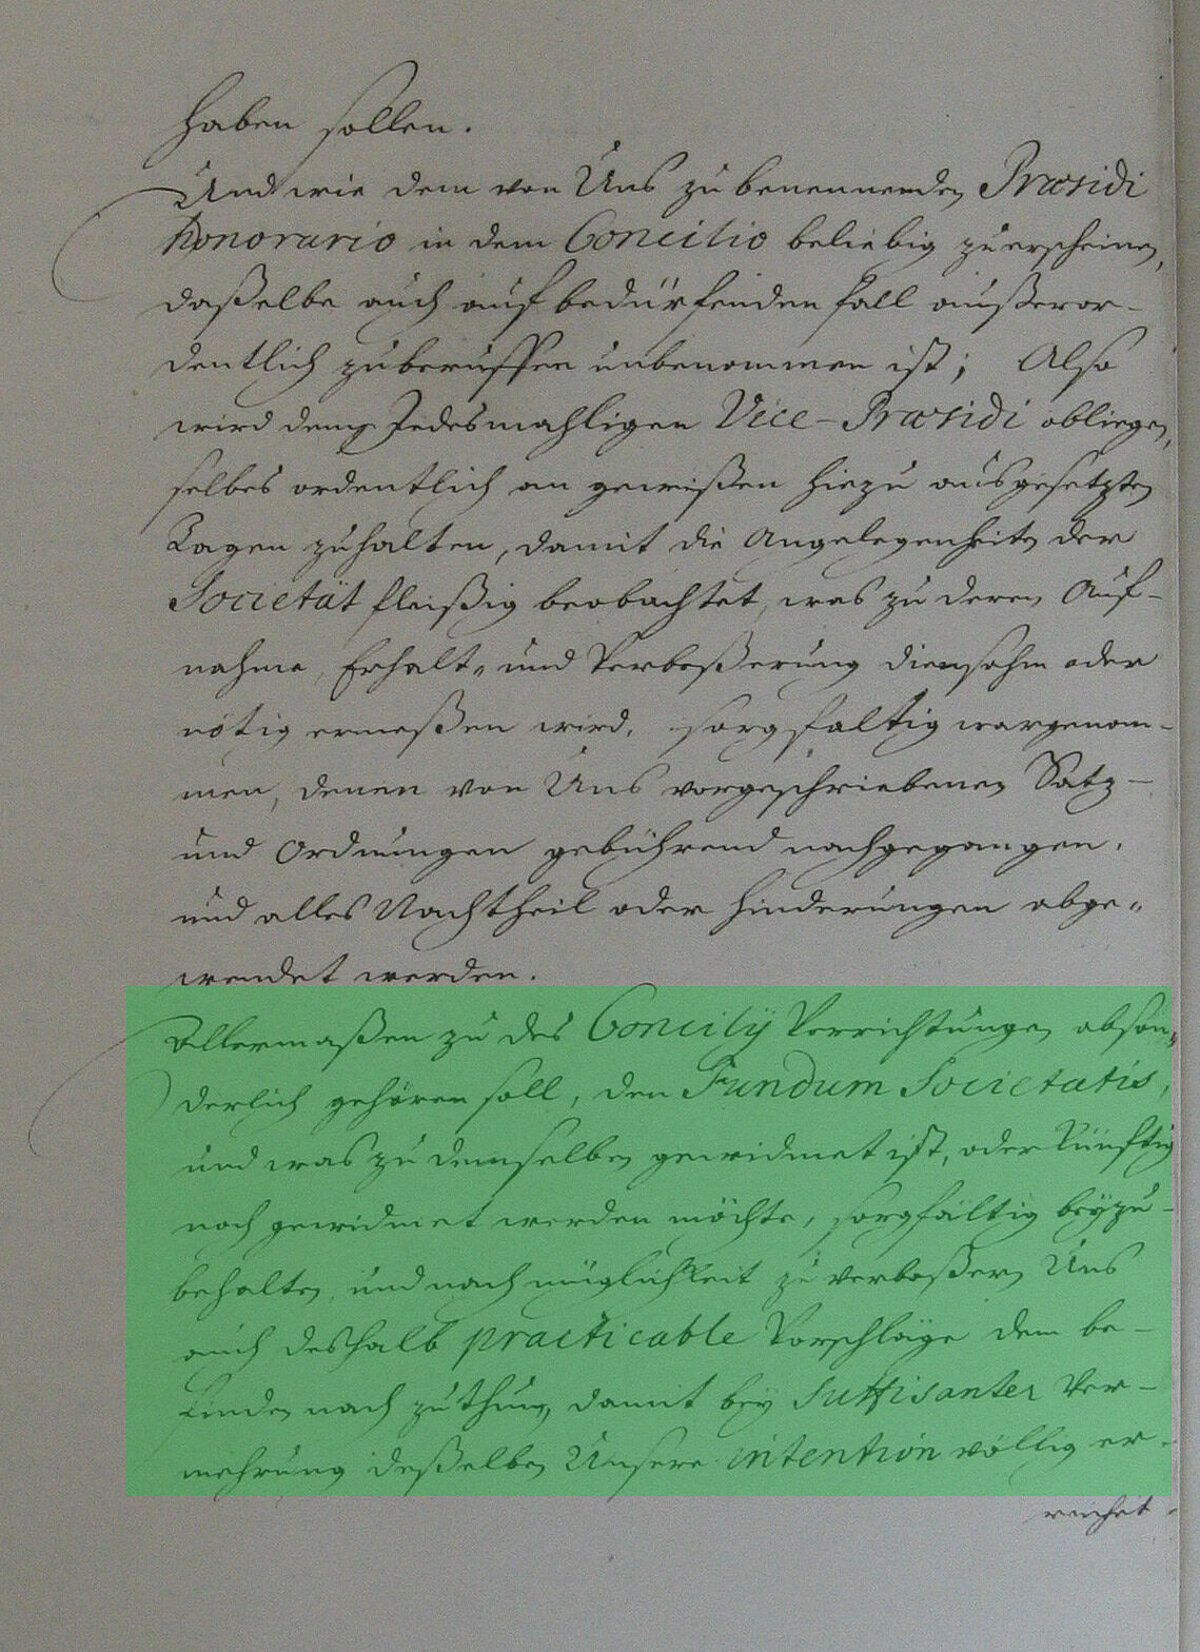 haben sollen.
Und wie dem von Uns zu benennenden Præsidi
honorario in dem Concilio beliebig zu erscheinen,
daßelbe auch auf bedürfenden fall außeror-
dentlich zu beruffen unbenommen ist; Also
wird dem Jedesmahligen Vice-Præsidi obliegen,
selbes ordentlich an gewißen hiezu ausgesetzten
Tagen zuhalten, damit die Angelegenheiten der
Societät fleißig beobachtet, was zu deren Auf-
nahme, Erhalt- und Verbeßerung diensahm oder
nötig ermeßen wird, sorgfaltig wargenom-
men, denen von Uns vorgeschriebenen Satz-
und Ordnungen gebührend nachgegangen,
und alles Nachtheil oder hinderungen abge-
wendet werden.
Allermaßen zu des Concilÿ Verrichtungen abson-
derlich gehören soll, den Fundum Societatis,
und was zu demselben gewidmet ist, oder künftig
noch gewidmet werden möchte, sorgfältig beyzu-
behalten, und nach müglichkeit zu verbeßern, Uns
auch deshalb practicable Vorschläge dem be-
finden nach zuthun, damit bey suffisanter Ver-
mehrung deßelben Unsere intention völlig er-
reichet